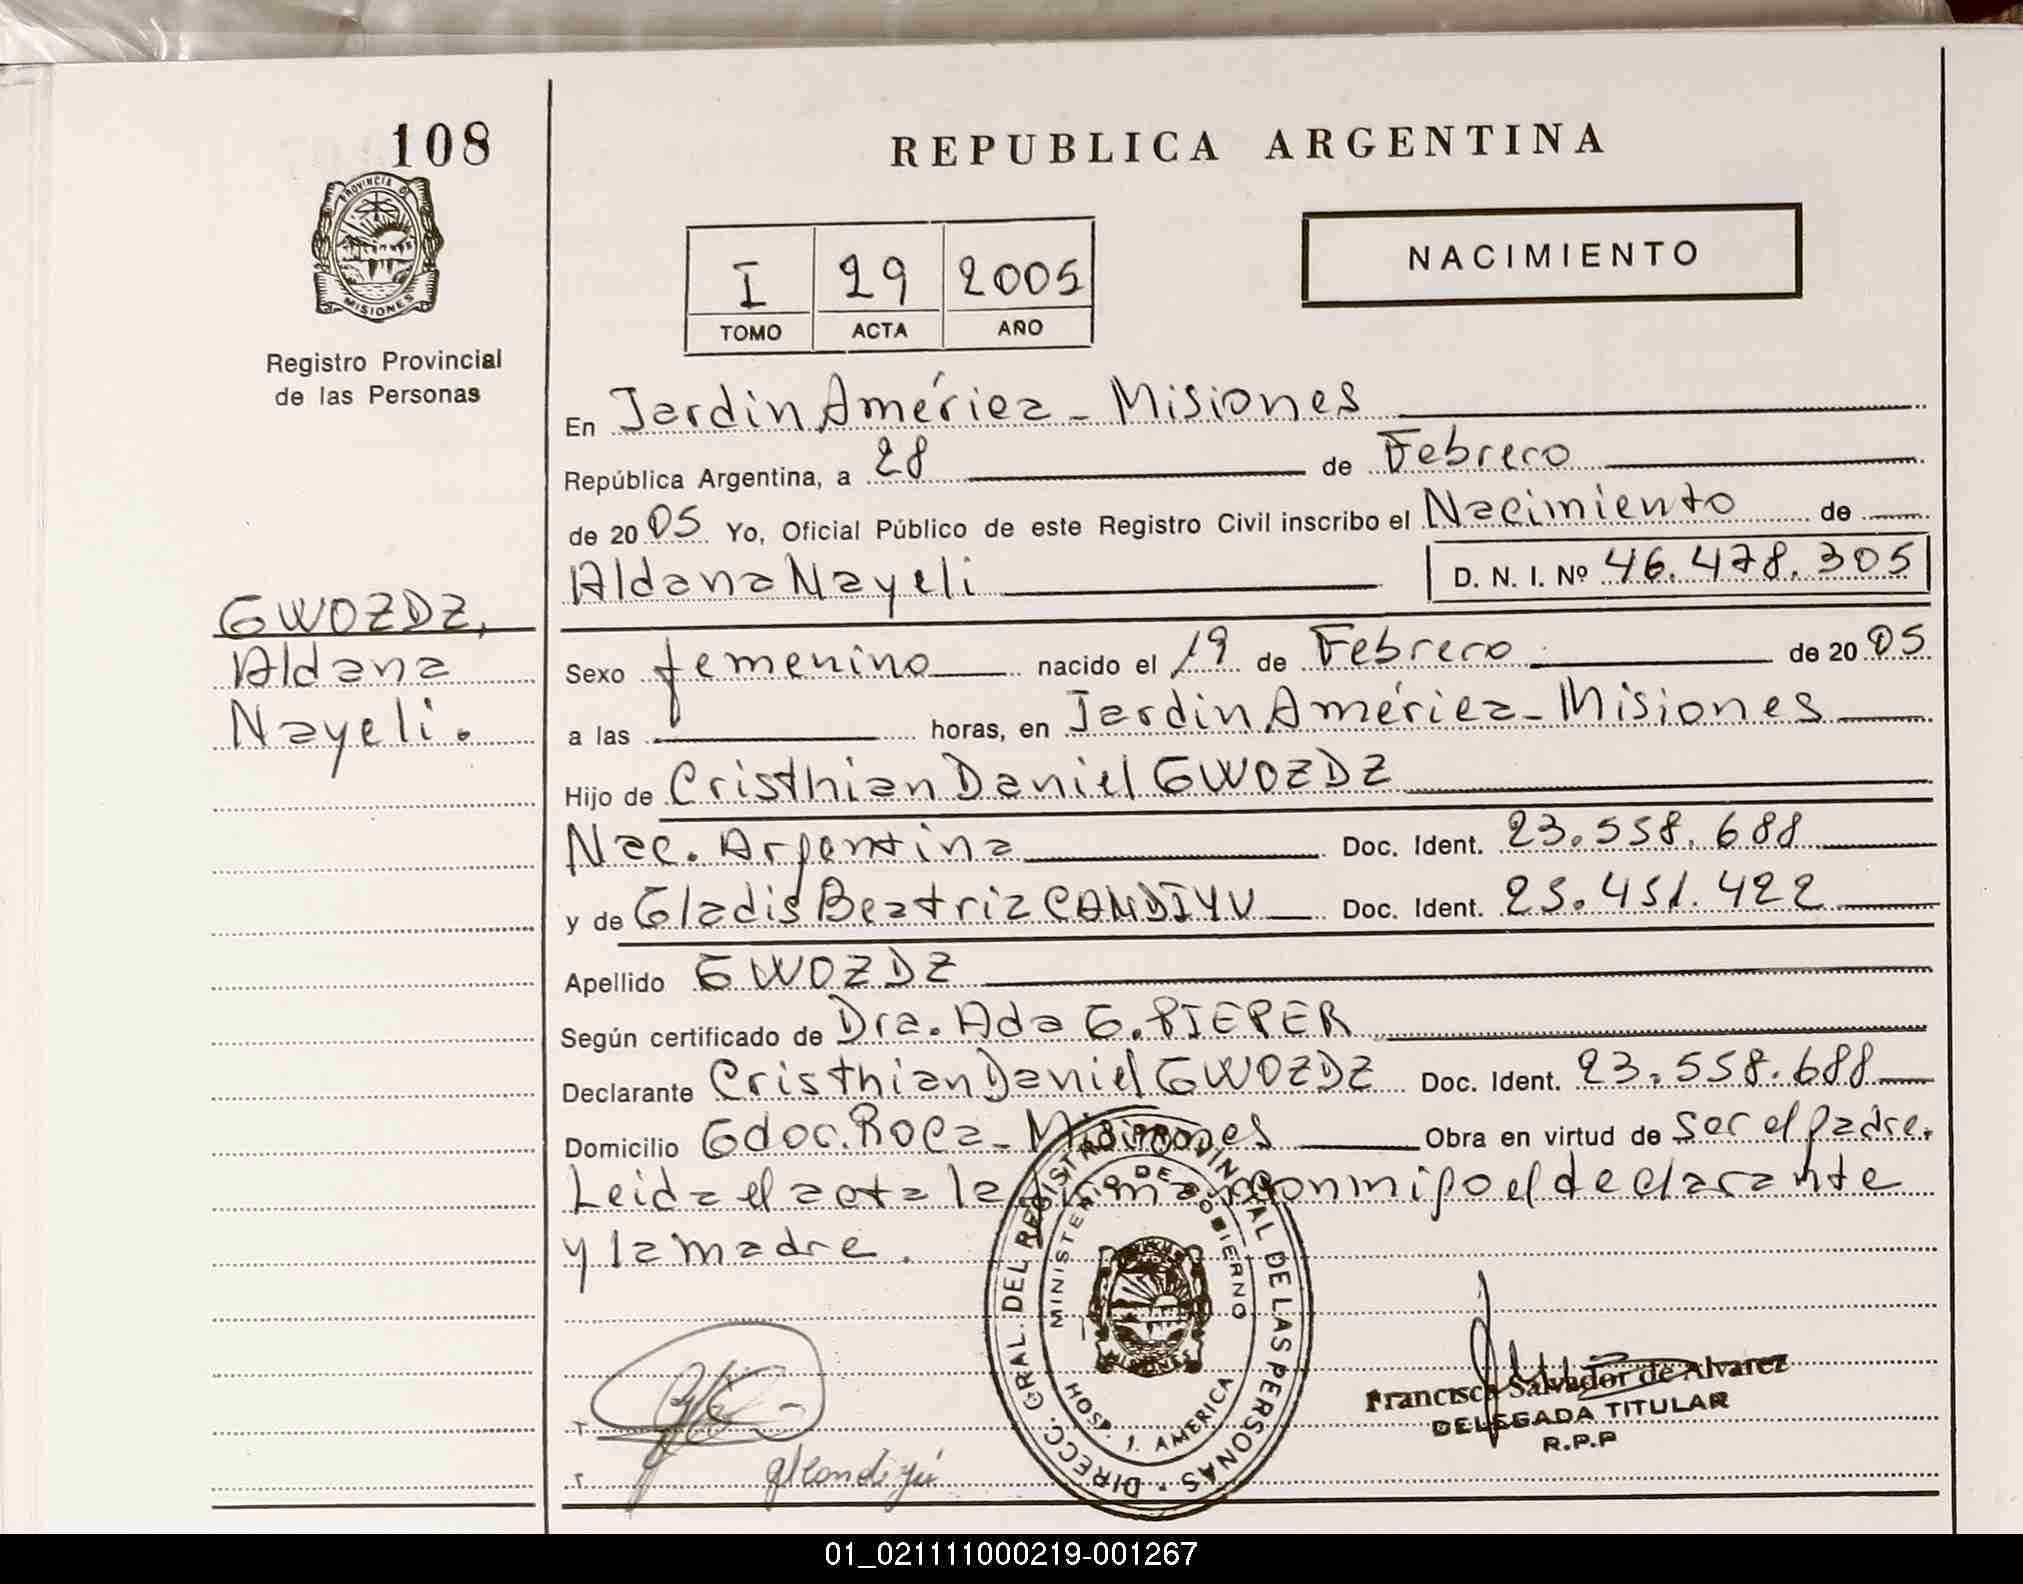 108
PROVINCIA D
MISIONES
Registro Provincial
de las Personas
REPUBLICA ARGENTINA
I 29 2005
TOMO ACTA AÑO
NACIMIENTO
En Jardin América - Misiones
República Argentina, a 28 de Febrero
de 2005 Yo, Oficial Público de este Registro Civil inscribo el Nacimiento de
Aldana Nayeli D. N. I. Nº 46.478.305
GWOZDZ,
Aldana
Nayeli.
Sexo femenino nacido el 19 de Febrero de 2005
a las horas, en Jardin América - Misiones
Hijo de Cristhian Daniel GWOZDZ
Nac. Argentina Doc. Ident. 23.558.688
y de Gladis Beatriz CANDIYU Doc. Ident. 25.451.422
Apellido GWOZDZ
Según certificado de Dra. Ada G. PIEPER
Declarante Cristhian Daniel GWOZDZ Doc. Ident. 23.558.688
Domicilio Gdor. Roca - Misiones Obra en virtud de ser el padre.
Leida el acta la firman conmigo el declarante
y la madre.
DIRECC. GRAL. DEL REGISTRO PROVINCIAL DE LAS PERSONAS
MINISTERIO DE GOBIERNO
MISIONES
HOSP. J. AMERICA
Francisca Salvador de Alvarez
DELEGADA TITULAR
R.P.P
01_021111000219-001267